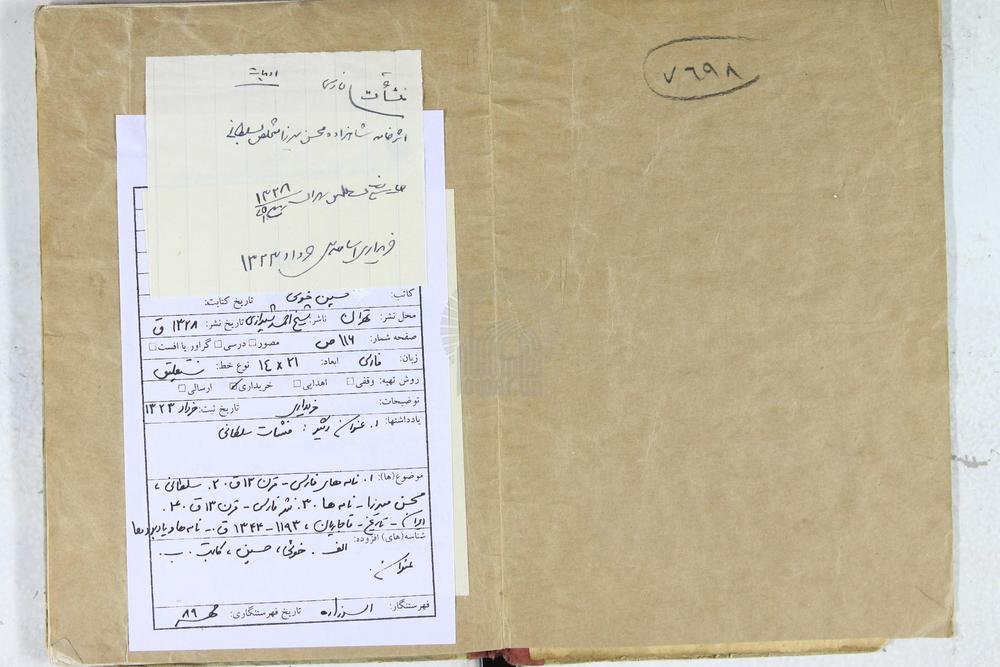 ادبیات
منشآت فارسی
اثر خامه شاهزاده محسن میرزا متخلص بسلطانی
چاپ سنگی طهران ۱۳۲۸
خریداری خرداد ۱۳۲۳
کاتب: حسین خوئی تاریخ کتابت:
محل نشر: تهران ناشر: شیخ احمد شیرازی تاریخ نشر: ۱۳۲۸ ق
صفحه شمار: ۱۱۶ ص مصور □ درسی □ گراور یا افست □
زبان: فارسی ابعاد: ۲۱ × ۱۴ نوع خط: نستعلیق
روش تهیه: وقفی □ اهدایی □ خریداری ☑ ارسالی □
توضیحات: خریداری تاریخ ثبت: خرداد ۱۳۲۳
یادداشتها: ۱. عنوان دیگر: منشآت سلطانی
موضوع(ها): ۱. نامه های فارسی - قرن ۱۳ ق. ۲. سلطانی،
محسن میرزا - نامه ها. ۳. نثر فارسی - قرن ۱۳ ق. ۴.
ایران - تاریخ - قاجاریان، ۱۱۹۳ - ۱۳۴۴ ق. - نامه ها و یادبودها
شناسه(های) افزوده: الف. خوئی، حسین، کاتب. ب.
عنوان.
فهرستنگار: تاریخ فهرستنگاری: مهر ۸۹
۷۶۹۸